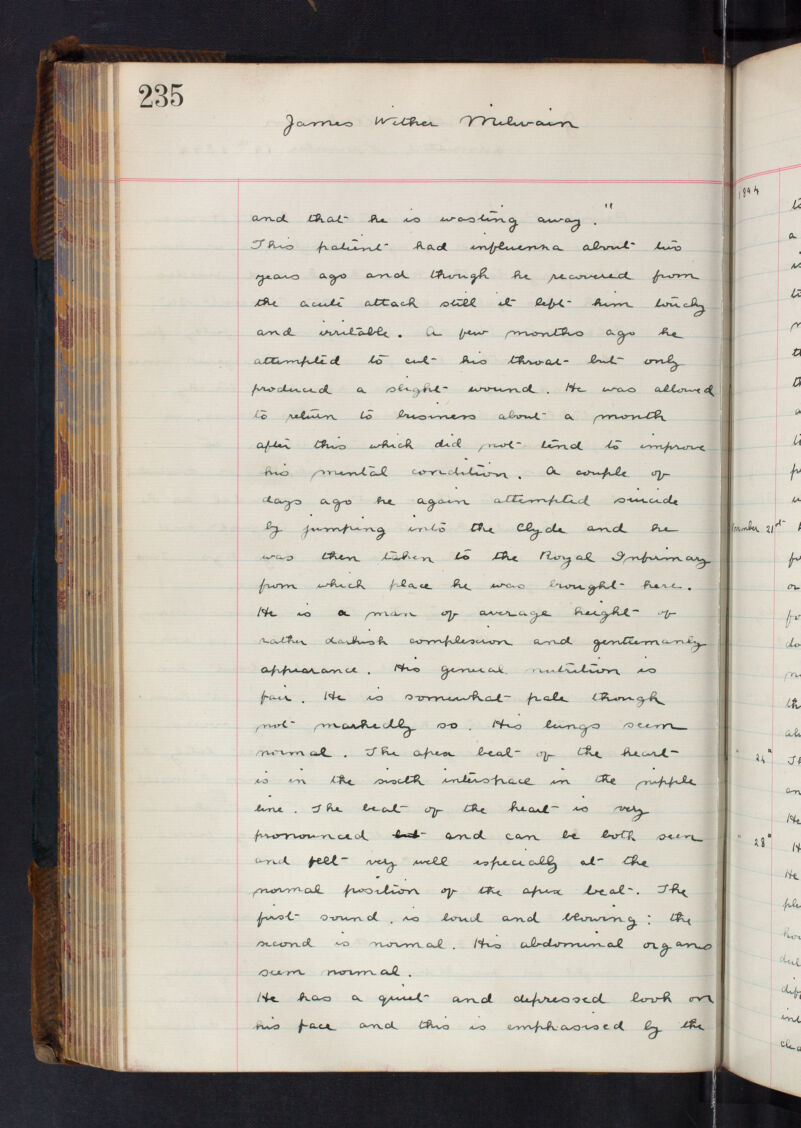 235
James Wither Milwain
and that he is wasting away."
This patient had influenza about two
years ago and though he recovered from
the acute attack still it left him touchy
and irritable. A few months ago he
attempted to cut his throat but only
produced a slight wound. He was allowed
to return to business about a month
after this which did not tend to improve
his mental condition. A couple of
days ago he again attempted suicide
by jumping into the Clyde and he
was then taken to the Royal Infirmary
from which place he was brought here.
He is a man of average height of
rather darkish complexion and gentlemanly
appearance. His general nutrition is
fair. He is somewhat pale though
not markedly so. His lungs seem
normal. The apex beat of the heart
is in the sixth interspace in the nipple
line. The beat of the heart is very
pronounced but and can be both seen
and felt very well especially at the
normal position of the apex beat. The
first sound is loud and blowing: the
second is normal. His abdominal organs
seem normal.
He has a quiet and depressed look on
his face and this is emphasised by the
1894
21st
" 24"
" 28"